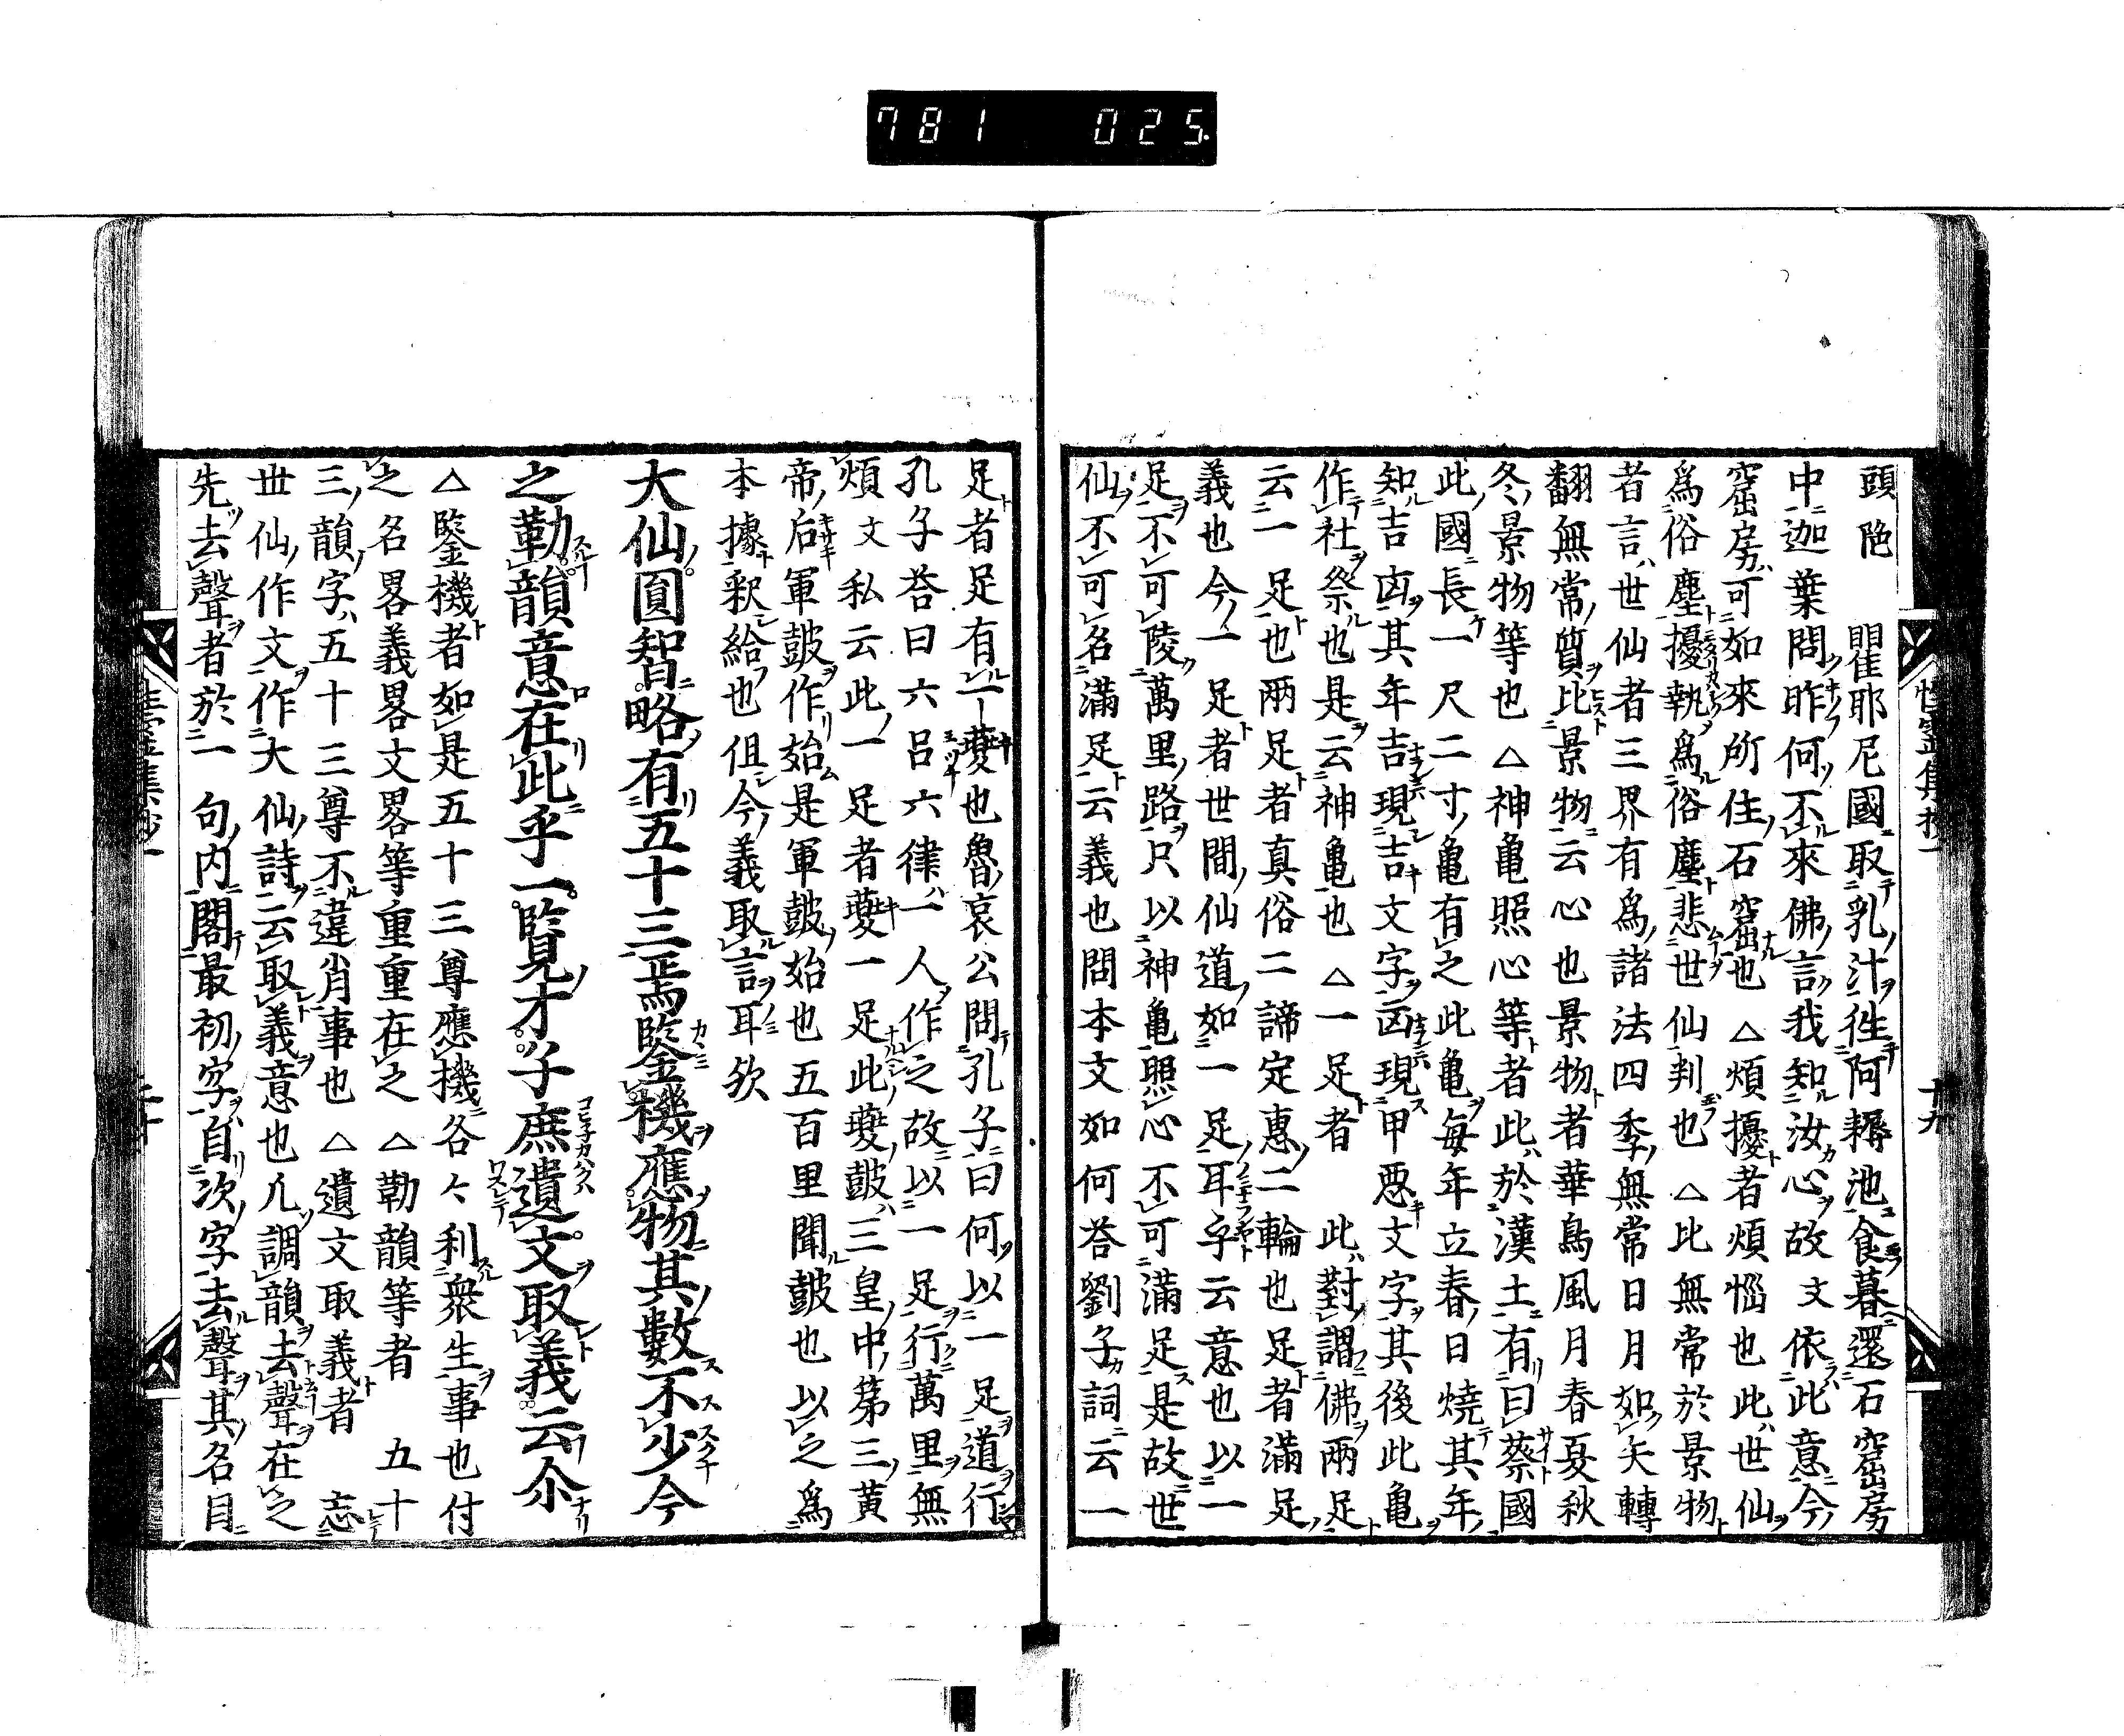 781 025.
頭陁 瞿耶尼國取乳汁徃阿耨池食暮還石窟房
中迦葉問昨何不來佛言我知汝心故文依此意今
窟房可如來所住石窟也△煩擾者煩惱也此世仙
爲俗塵擾執爲俗塵悲世仙判也△比無常於景物
者言世仙者三界有爲諸法四季無常日月如矢轉
翻無常質比景物云心也景物者華鳥風月春夏秋
冬景物等也△神亀照心等者此於漢土有曰蔡國
此國長一尺二寸亀有之此亀每年立春日燒其年
知吉凶其年吉現吉文字凶現甲惡文字其後此亀
作社祭也是云神亀也△一足者 此對謂佛兩足
云一足也兩足者真俗二諦定惠二輪也足者滿足
義也今一足者世間仙道如一足耳字云意也以一
足不可陵萬里路只以神亀照心不可滿足是故世
仙不可名滿足云義也問本文如何荅劉子詞云一
十九
足者足有一夔也魯哀公問孔子曰何以一足道行
孔子荅曰六呂六律一人作之故以一足行萬里無
煩文私云此一足者夔一足此夔皷三皇中第三黃
帝后軍皷作始是軍皷始也五百里聞皷也以之爲
本據釈給也伹今義取言耳欤
大仙圓智略有五十三焉鑒機應物其數不少今
之勒韻意在此乎一覧才子庶遺文取義云尒
△鑒機者如是五十三尊應機各々利衆生事也付
之名畧義畧文畧等重重在之△勒韻等者 五十
三韻字五十三尊不違肖事也△遺文取義者 忘
世仙作文作大仙詩云取義意也凡調韻去聲在之
先去聲者於一句内閣最初字自次字去聲其名目